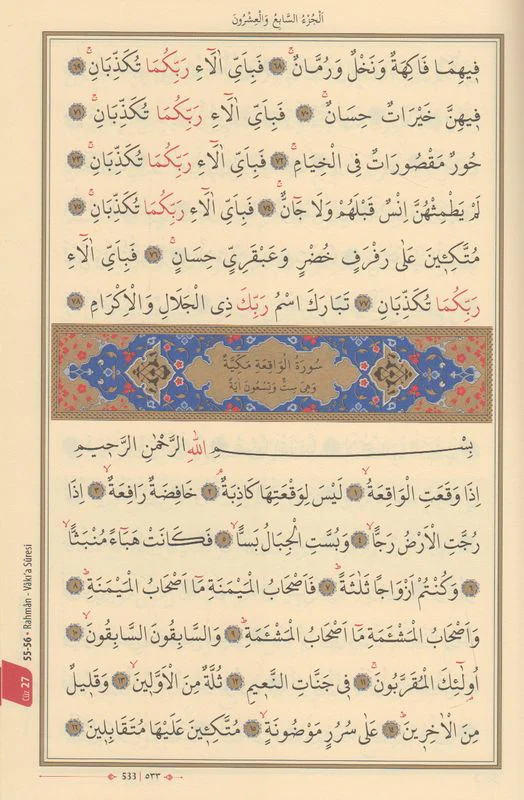 اَلْجُزْءُ السَّابِعُ وَالْعِشْرُونَ
فٖيهِمَا فَاكِهَةٌ وَنَخْلٌ وَرُمَّانٌۚ ﴿٦٨﴾ فَبِاَيِّ اٰلَٓاءِ رَبِّكُمَا تُكَذِّبَانِۚ ﴿٦٩﴾
فٖيهِنَّ خَيْرَاتٌ حِسَانٌۚ ﴿٧٠﴾ فَبِاَيِّ اٰلَٓاءِ رَبِّكُمَا تُكَذِّبَانِۚ ﴿٧١﴾
حُورٌ مَقْصُورَاتٌ فِي الْخِيَامِۚ ﴿٧٢﴾ فَبِاَيِّ اٰلَٓاءِ رَبِّكُمَا تُكَذِّبَانِۚ ﴿٧٣﴾
لَمْ يَطْمِثْهُنَّ اِنْسٌ قَبْلَهُمْ وَلَا جَٓانٌّۚ ﴿٧٤﴾ فَبِاَيِّ اٰلَٓاءِ رَبِّكُمَا تُكَذِّبَانِۚ ﴿٧٥﴾
مُتَّكِـٖٔينَ عَلٰى رَفْرَفٍ خُضْرٍ وَعَبْقَرِيٍّ حِسَانٍۚ ﴿٧٦﴾ فَبِاَيِّ اٰلَٓاءِ
رَبِّكُمَا تُكَذِّبَانِ ﴿٧٧﴾ تَبَارَكَ اسْمُ رَبِّكَ ذِي الْجَلَالِ وَالْاِكْرَامِ ﴿٧٨﴾
سُورَةُ الْوَاقِعَةِ مَكِّيَّةٌ
وَهِيَ سِتٌّ وَتِسْعُونَ اٰيَةً
بِسْمِ اللّٰهِ الرَّحْمٰنِ الرَّحٖيمِ
اِذَا وَقَعَتِ الْوَاقِعَةُۙ ﴿١﴾ لَيْسَ لِوَقْعَتِهَا كَاذِبَةٌۢ ﴿٢﴾ خَافِضَةٌ رَافِعَةٌۙ ﴿٣﴾ اِذَا
رُجَّتِ الْاَرْضُ رَجًّاۙ ﴿٤﴾ وَبُسَّتِ الْجِبَالُ بَسًّاۙ ﴿٥﴾ فَكَانَتْ هَبَٓاءً مُنْبَثًّاۙ
﴿٦﴾ وَكُنْتُمْ اَزْوَاجًا ثَلٰثَةًۜ ﴿٧﴾ فَاَصْحَابُ الْمَيْمَنَةِ مَٓا اَصْحَابُ الْمَيْمَنَةِۜ ﴿٨﴾
وَاَصْحَابُ الْمَشْـَٔمَةِ مَٓا اَصْحَابُ الْمَشْـَٔمَةِۜ ﴿٩﴾ وَالسَّابِقُونَ السَّابِقُونَۙ ﴿١٠﴾
اُو۬لٰٓئِكَ الْمُقَرَّبُونَۚ ﴿١١﴾ فٖي جَنَّاتِ النَّعٖيمِ ﴿١٢﴾ ثُلَّةٌ مِنَ الْاَوَّلٖينَۙ ﴿١٣﴾ وَقَلٖيلٌ
مِنَ الْاٰخِرٖينَۜ ﴿١٤﴾ عَلٰى سُرُرٍ مَوْضُونَةٍۙ ﴿١٥﴾ مُتَّكِـٖٔينَ عَلَيْهَا مُتَقَابِلٖينَ ﴿١٦﴾
55-56 - Rahmân - Vâkı'a Sûresi
Cüz 27
533 | ٥٣٣